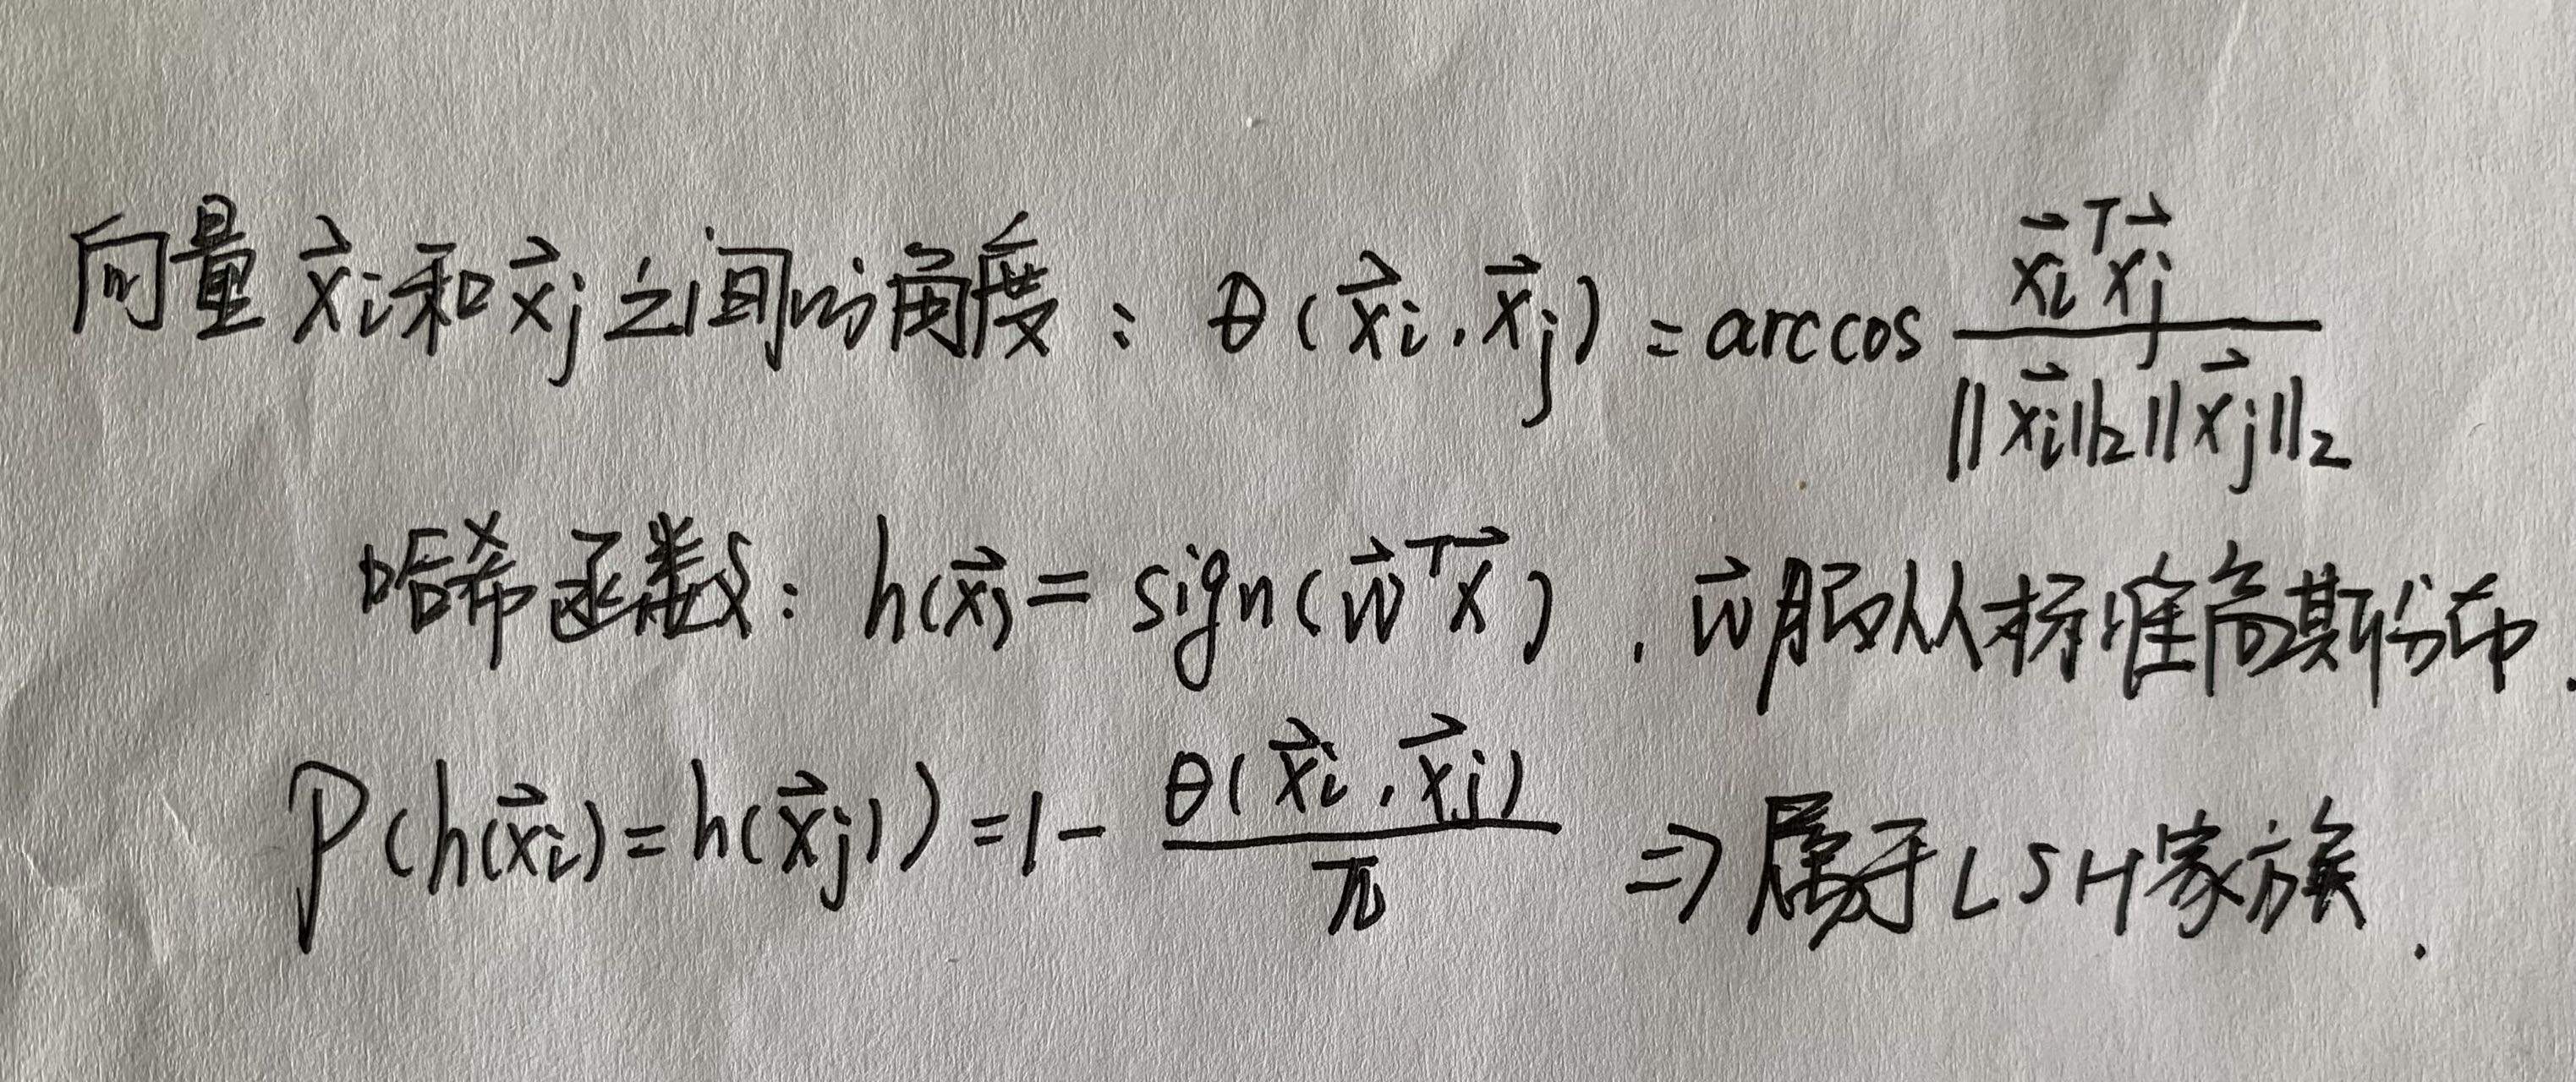 向量 $\vec{x}_i$ 和 $\vec{x}_j$ 之间的角度：$\theta(\vec{x}_i, \vec{x}_j) = \arccos \frac{\vec{x}_i^T \vec{x}_j}{\|\vec{x}_i\|_2 \|\vec{x}_j\|_2}$
哈希函数：$h(\vec{x}) = \text{sign}(\vec{w}^T \vec{x})$，$\vec{w}$ 服从标准高斯分布.
$P(h(\vec{x}_i) = h(\vec{x}_j)) = 1 - \frac{\theta(\vec{x}_i, \vec{x}_j)}{\pi}$ ⇒ 属于LSH家族.